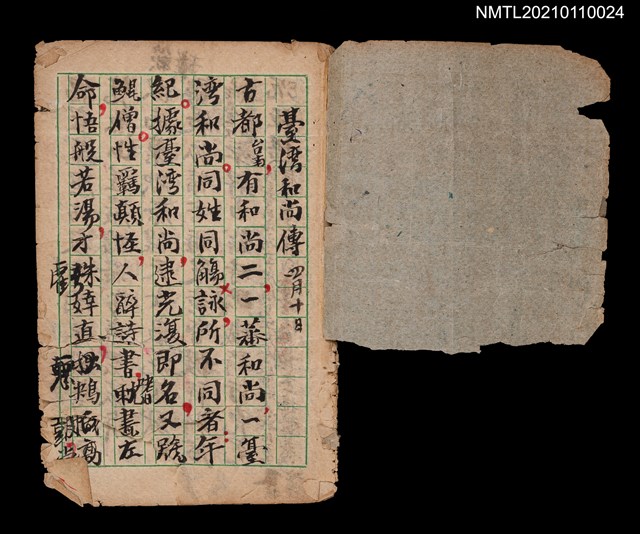 NMTL20210110024
臺湾和尚傳 四月十日
古都台南有和尚二一恭和尚一臺
湾和尚同姓同觴詠所不同者年
紀據臺湾和尚逮光復即名又號
鯤僧性羈顛恠人辭詩書耽畫左
命悟般若湯才殊直鴆高